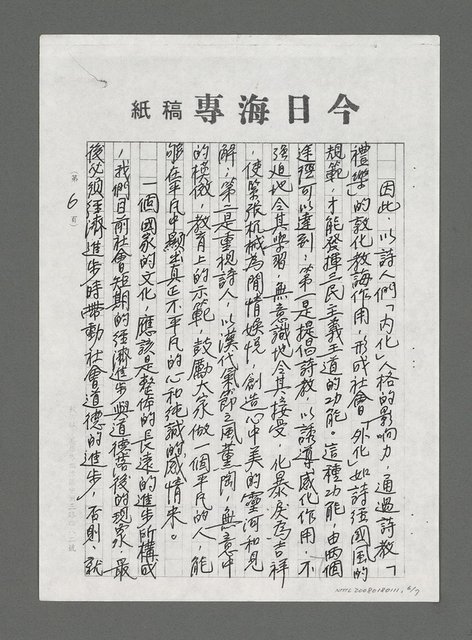 今日海專稿紙
因此，以詩人們「內化」人格的影響力，通過詩教「
禮樂」的教化教誨作用，形成社會「外化」如詩經國風的
規範，才能發揮三民主義王道的功能。這種功能，由兩個
途徑可以達到，第一是提倡詩教，以誘導感化作用，不
強迫地令其學習，無意識地令其接受，化暴戾為吉祥
，使緊張机械為閒情娛悅，創造心中美的靈河和見
解，第二是重視詩人，以漢代氣節之風薰陶，無意中
的模傚，教育上的示範，鼓勵大家做一個平凡的人，能
夠在平凡中顯出真正不平凡的心和純誠的感情來。
一個國家的文化，應該是整佈的長遠的進步所構成
，我們目前社會短期的經濟進步與道德落後的現象，最
後必須經濟進步時帶動社會道德的進步，否則，就
（第 6 頁）
NMTL20080180111, 6/7